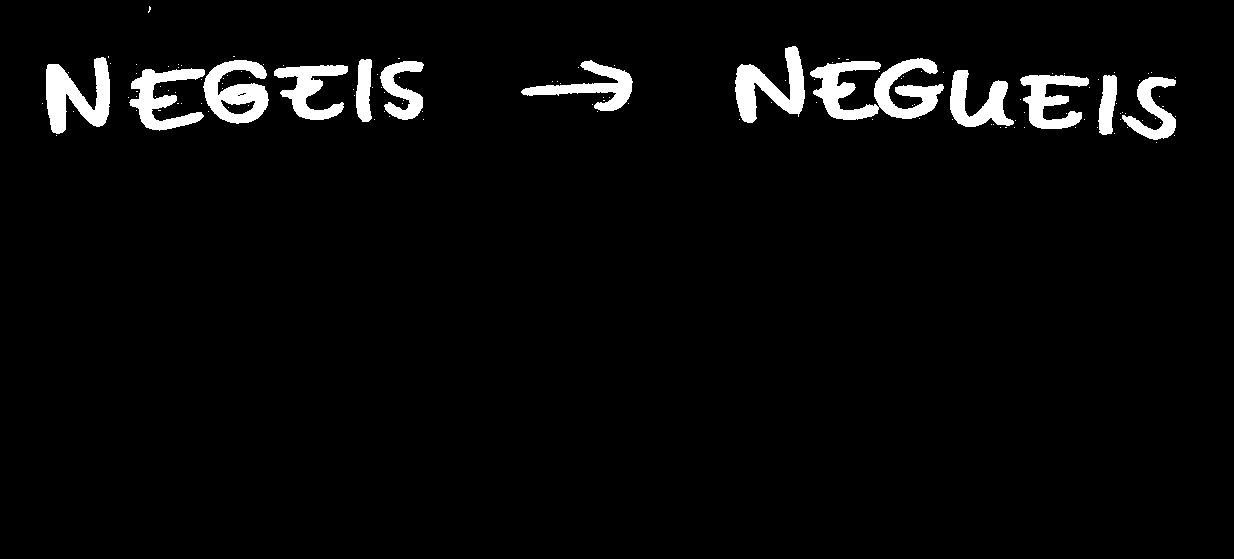 NEGEIS → NEGUEIS